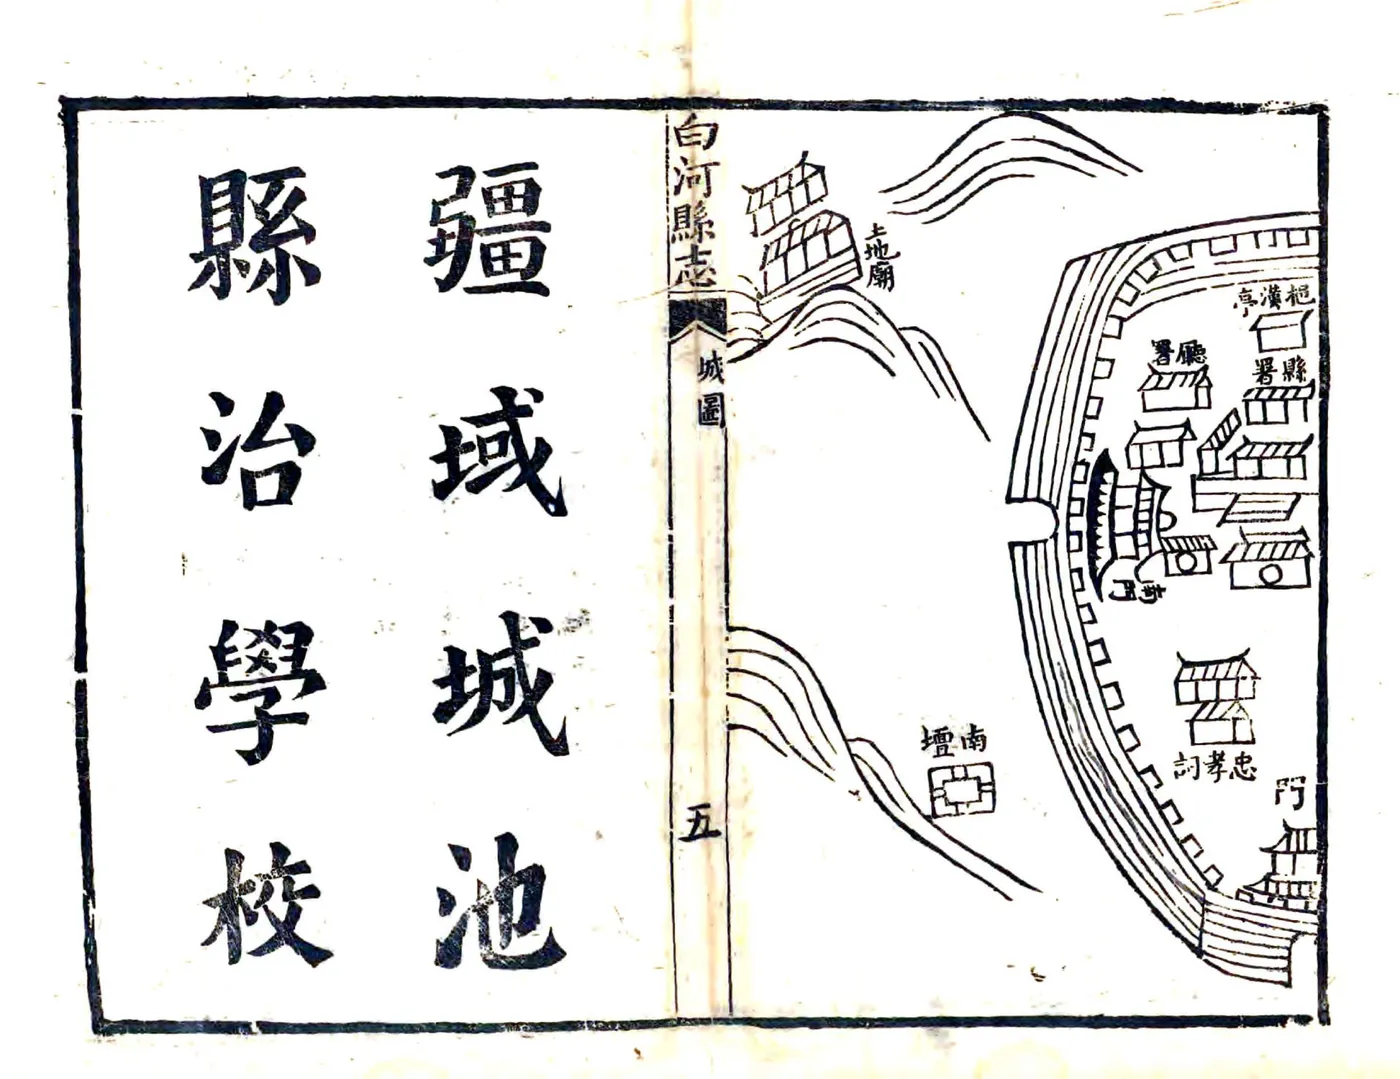 挹漢亭
縣署
廳署
南門
忠孝祠
門
土地廟
南壇
白河縣志
城圖
五
疆域城池
縣治學校